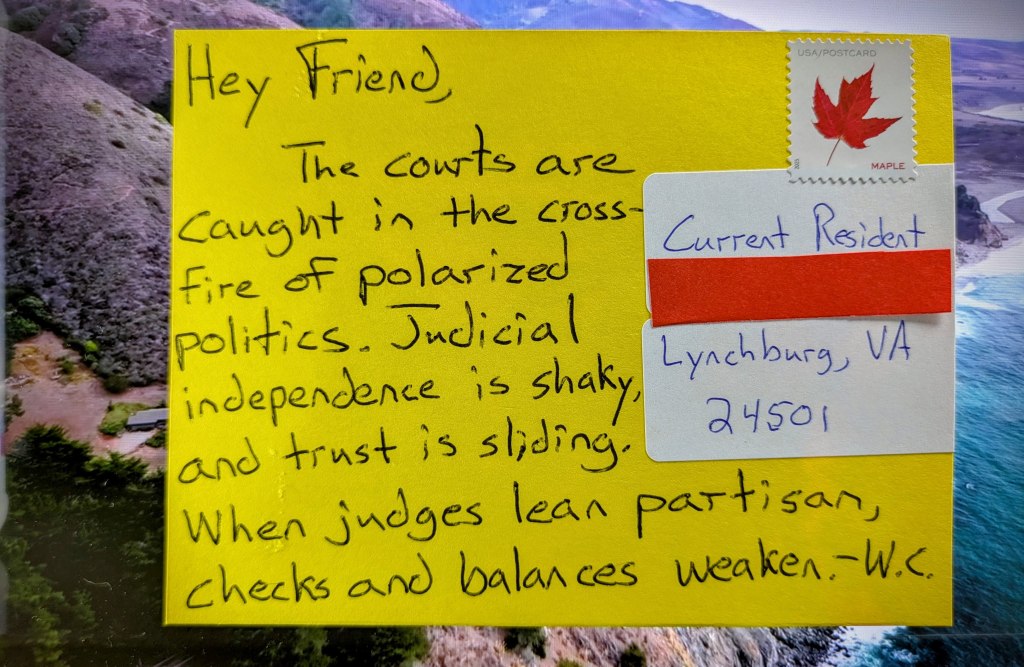 Hey Friend,
The courts are
caught in the cross-
fire of polarized
politics. Judicial
independence is shaky,
and trust is sliding.
When judges lean partisan,
checks and balances weaken.-W.C.
USA/POSTCARD
MAPLE
Current Resident
Lynchburg, VA
24501